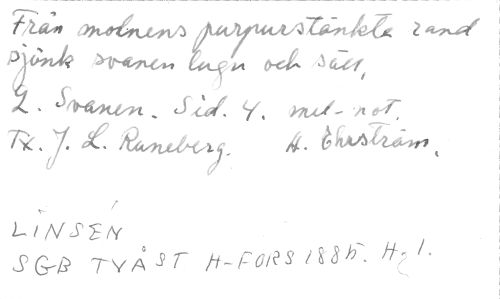 Från molnens purpurstänkta rand
sjönk svanen lugn och säll,
2. Svanen. Sid. 4. mel-not.
Tx. J. L. Runeberg. A. Ehrström.
LINSÉN
SGB TVÅST H-FORS 1885. H. 1.